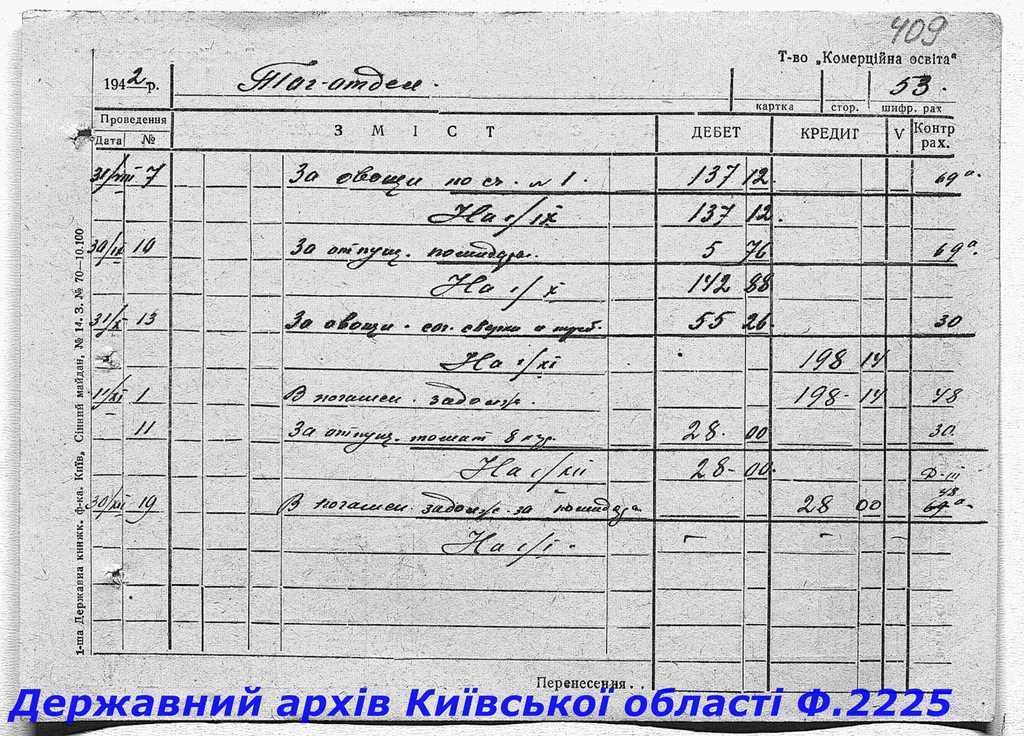 409
Т-во „Комерційна освіта"
1942 р. Таг-отдел. 53.
картка стор. шифр. рах
Проведення
Дата № ЗМІСТ ДЕБЕТ КРЕДИТ V Контр рах.
31/VIII 7 За овощи по сч. №1. 137 12 69а.
На 1/IX 137 12.
30/IX 10 За отпущ. помидоры. 5 76 69а.
На 1/X 142 88
31/X 13 За овощи 55 26 30
На 1/XI 198 14
11/XI 1 В погашен. задолж. 198 14 48
11 За отпущ. томат 28 00 30
На 1/XII 28 00
30/XII 19 В погашен. задолж. за помидоры 28 00 48
На 1/I - - -
Перенесення. .
1-ша Державна книжк. ф-ка. Київ, Сінний майдан, № 14. З. № 70—10.100
Державний архів Київської області Ф.2225